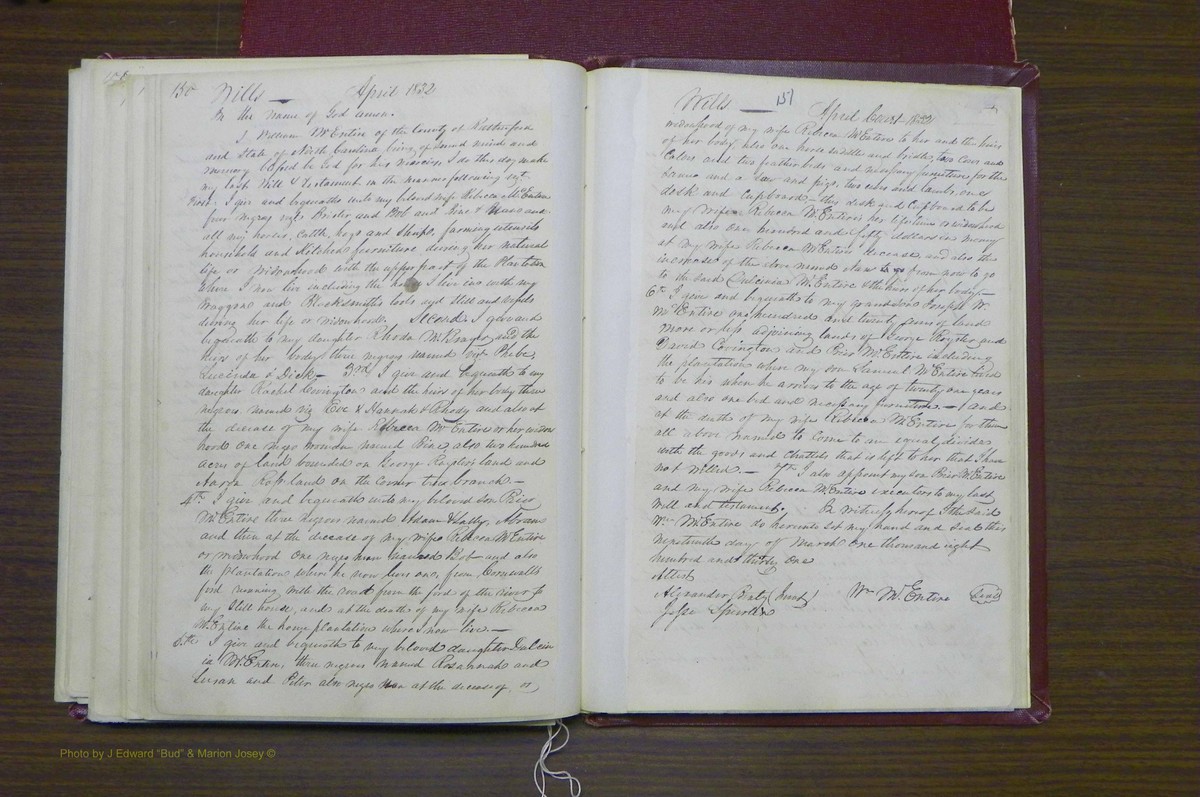 150 Wills — April 1832
In the name of God amen.
I William McEntire of the County of Rutherford
and State of North Carolina being of sound mind and
memory blessed be God for his mercies I do this day make
my last Will & Testament in the manner following viz
First. I give and bequeath unto my beloved wife Rebecca McEntire
four negroes viz Brister and Bob and Pine & and
all my horses, Cattle, hogs and Sheep, farming utensils
household and Kitchen furniture during her natural
life or Widowhood with the upper part of the Plantation
where I now live including the house I live in with my
Waggons and Blacksmiths tools and Still and vessels
during her life or widowhood. Second. I give and
bequeath to my daughter Rhoda McBrayer and the
heirs of her body three negroes named viz Phebe,
Lucinda & Dick — 3rd I give and bequeath to my
daughter Rachel Covington and the heirs of her body three
negroes named viz Eve & Hannah & Rhody and also at
the decease of my wife Rebecca McEntire or her widow
hood one negro woman named Pine also two hundred
acres of land bounded on George Roysters land and
Aaron land on the Corner tree branch —
4th. I give and bequeath unto my beloved son Rice
McEntire three negroes named Adam & Sally, Abram
and then at the decease of my wife Rebecca McEntire
or widowhood One negro man named Bob and also
the plantation where he now lives on, from Cornwalls
ford running with the road from the ford of the river to
my Still house, and at the death of my wife Rebecca
McEntire the home plantation where I now live. —
5th I give and bequeath to my beloved daughter Dulcin
ia McEntire, three negroes named Rosannah and
Susan and Peter also negro at the decease of, or
Wills — 151 April Court 1832
widowhood of my wife Rebecca McEntire to her and the heirs
of her body, also one horse saddle and bridle, two Cows and
Calves and two feather beds and necessary furniture for the
same and a Sow and pigs, two ewes and lambs, one
desk and Cupboard — this desk and Cupboard to be
my Wifes Rebecca McEntires her lifetime or widowhood
and also one hundred and fifty dollars in money
at my wife Rebecca McEntires decease and also the
increase of the above named from now to go
to the said Dulcinia McEntire & the heirs of her body —
6th I give and bequeath to my grandson Joseph W.
McEntire one hundred and twenty five of land
more or less adjoining lands of George Royster and
David Covington and Rice McEntire including
the plantation where my son Samuel McEntire lived
to be his when he arrives to the age of twenty one years
and also one bed and necessary furniture. — And
at the death of my wife Rebecca McEntire for them
all above named to come to an equal divide
with the goods and chattels that is left to her that I have
not willed. — 7th I also appoint my son Rice McEntire
and my wife Rebecca McEntire executors to my last
Will and testament. In witness hereof I the said
Wm McEntire do hereunto set my hand and seal this
nineteenth day of March one thousand eight
hundred and thirty one
Attest
Alexander (Jurat) Wm McEntire (Seal)
Jesse Spurlin
Photo by J Edward "Bud" & Marion Josey ©